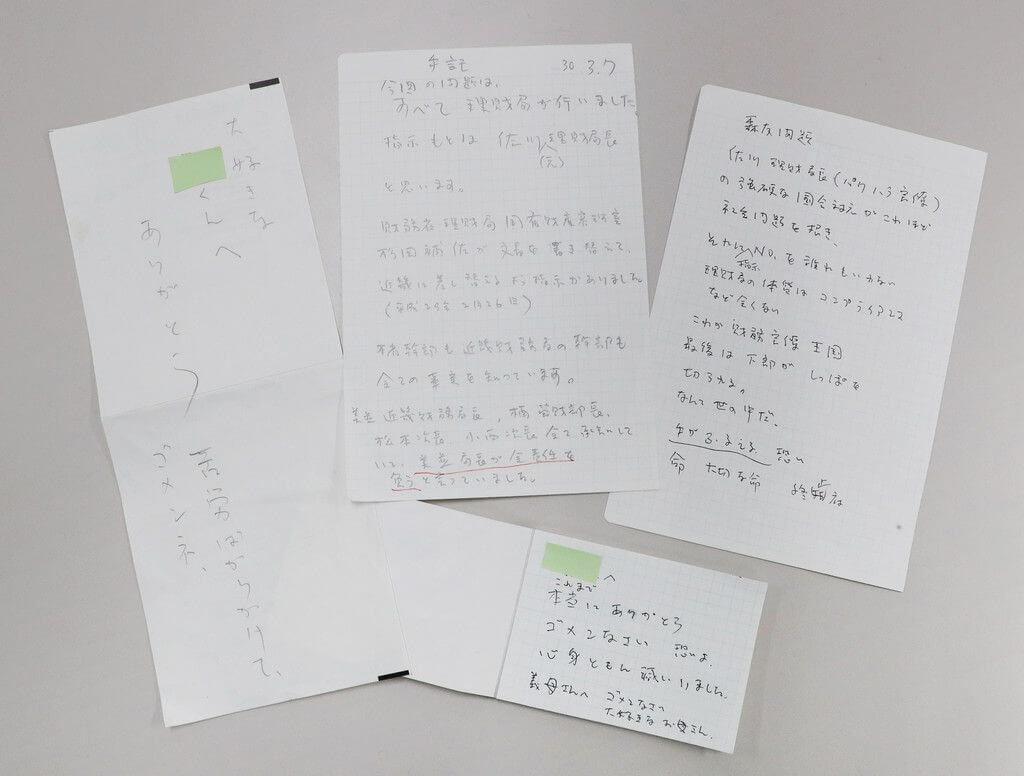 大好きな
くんへ
ありがとう
苦労ばかりかけて、
ゴメンネ、
手記 30.3.7
今回の問題は、
すべて理財局が行いました
指示もとは 佐川(元)理財局長
と思います。
財務省理財局 国有財産審理室
杉田補佐が文書を書き替えて、
近畿に差し替えるよう指示がありました
(平成29年2月26日)
本省幹部も近畿財務局の幹部も
全ての事実を知っています。
美並近畿財務局長、楠管財部長、
松本次長 小西次長全て承知して
いて、美並局長が全責任を
負うと言っていました。
森友問題
佐川 理財局長(パワハラ官僚)
の強硬な国会対応がこれほど
社会問題を招き、
それに指示NO、を誰れもいわない
理財局の体質はコンプライアンス
など全くない
これが財務官僚王国
最後は下部がしっぽを
切られる。
なんて世の中だ、
手がふるえる 恐い
命 大切な命 終止府
へ
これまで
本当にありがとう
ゴメンなさい 恐いよ、
心身ともに滅いりました。
義母さんへ ゴメンなさい
大好きなお母さん。